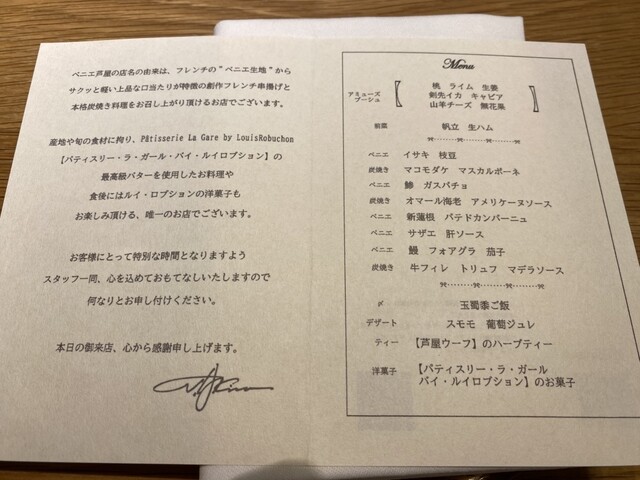 ベニエ芦屋の店名の由来は、フレンチの"ベニエ生地"から
サクッと軽い上品な口当たりが特徴の創作フレンチ串揚げと
本格炭焼き料理をお召し上がり頂けるお店でございます。
産地や旬の食材に拘り、Pâtisserie La Gare by LouisRobuchon
【パティスリー・ラ・ガール・バイ・ルイロブション】の
最高級バターを使用したお料理や
食後にはルイ・ロブションの洋菓子も
お楽しみ頂ける、唯一のお店でございます。
お客様にとって特別な時間となりますよう
スタッフ一同、心を込めておもてなしいたしますので
何なりとお申し付けください。
本日の御来店、心から感謝申し上げます。
Menu
アミューズ
ブーシュ
桃 ライム 生姜
剣先イカ キャビア
山羊チーズ 無花果
前菜 帆立 生ハム
ベニエ イサキ 枝豆
炭焼き マコモダケ マスカルポーネ
ベニエ 鯵 ガスパチョ
炭焼き オマール海老 アメリケーヌソース
ベニエ 新蓮根 パテドカンパーニュ
ベニエ サザエ 肝ソース
ベニエ 鰻 フォアグラ 茄子
炭焼き 牛フィレ トリュフ マデラソース
〆 玉蜀黍ご飯
デザート スモモ 葡萄ジュレ
ティー 【芦屋ウーフ】のハーブティー
洋菓子 【パティスリー・ラ・ガール
バイ・ルイロブション】のお菓子